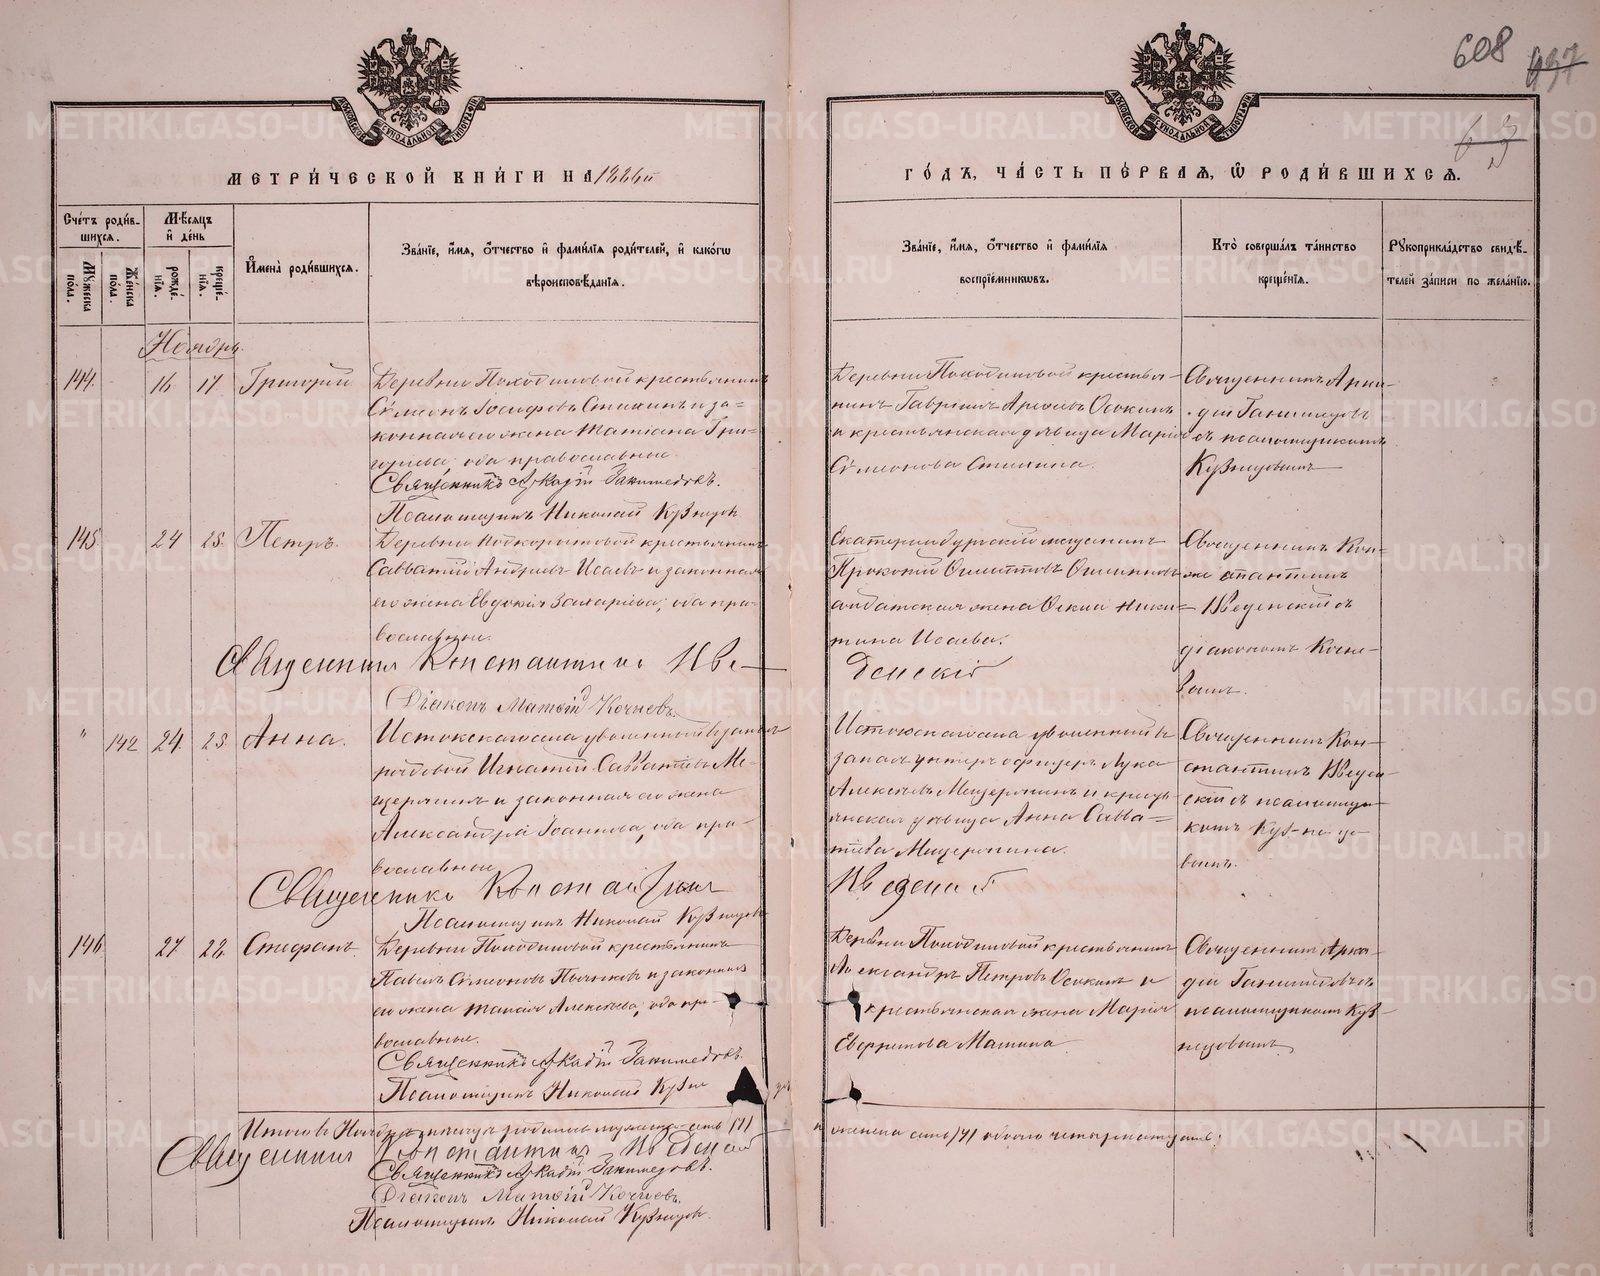 608 637
63
МЕТРИ́ЧЕСКОЙ КНИ́ГИ НА 1886й
ГО́ДЪ, ЧА́СТЬ ПЕ́РВАЯ, Ѿ РОДИ́ВШИХСЯ.
Сче́тъ роди́в-
шихся.
Му́жеска
по́ла.
Же́нска
по́ла.
Мѣ́сяцъ
и҆ де́нь
рожде́-
нїя.
креще́-
нїя.
И҆мена̀ роди́вшихся.
Зва́нїе, и҆́мя, ѻ҆́тчество и҆ фами́лїя роди́телей, и҆ како́гѡ
вѣроисповѣ́данїя.
Зва́нїе, и҆́мя, ѻ҆́тчество и҆ фами́лїя
воспрїе́мникѡвъ.
Кто̀ соверша́лъ та́инство
креще́нїя.
Рꙋкоприкла́дство свидѣ́-
телей за́писи по жела́нїю.
Ноябрь.
144. 16. 17. Григорій
Деревни Походиловой крестьянинъ
Сѵмеонъ Іосифовъ Стихинъ и за-
конная его жена Татіана Гри-
горьева, оба православные.
Священникъ Аркадій Ганимедовъ.
Псаломщикъ Николай Кузнецовъ
Деревни Походиловой крестья-
нинъ Гавріилъ Осокинъ
и крестьянская дѣвица Марія
Сѵмеонова Стихина.
Священникъ Арка-
дій Ганимедовъ
съ псаломщикомъ
Кузнецовымъ
145. 24 25. Петръ.
Деревни крестьянинъ
Савватій Андреевъ Исаевъ и законная
его жена Евдокія Захаріева, оба пра-
вославные.
Священникъ Константинъ Вве-
денскій
Діаконъ Матѳій Кочневъ.
Екатеринбургскій мещанинъ
Прокопій
солдатская жена Ники-
тина Исаева.
Священникъ Кон-
стантинъ
Введенскій съ
діакономъ Кочне-
вымъ.
" 142 24. 25. Анна.
Истокскаго села уволенный въ запасъ
рядовой Игнатій Савватіевъ Ме-
щерягинъ и законная его жена
Александра Іоаннова, оба пра-
вославные.
Священникъ Константинъ
Введенскій
Псаломщикъ Николай Кузнецовъ
Истокскаго села уволенный въ
запасъ унтеръ офицеръ Лука
Алексѣевъ Мещерягинъ и кресть-
янская дѣвица Анна Савва-
тіева Мещерягина.
Священникъ Кон-
стантинъ Введен-
скій съ псаломщи-
комъ Кузнецо-
вымъ.
146. 27 28. Стефанъ.
Деревни Походиловой крестьянинъ
Павелъ Сѵмеоновъ и законная
его жена Таисія Алексѣева, оба пра-
вославные.
Священникъ Аркадій Ганимедовъ.
Псаломщикъ Николай Кузнецовъ
Деревни Походиловой крестьянинъ
Александръ Петровъ Осокинъ и
крестьянская жена Марія
Евфратова Махнина.
Священникъ Арка-
дій Ганимедовъ съ
псаломщикомъ Куз-
нецовымъ
Итого въ Ноябрѣ мѣсяцѣ родилось мужеска семь /7/
и женска семь /7/ обоего четырнадцать.
Священникъ Константинъ Введенскій
Священникъ Аркадій Ганимедовъ.
Діаконъ Матѳій Кочневъ.
Псаломщикъ Николай Кузнецовъ.
METRIKI.GASO-URAL.RU